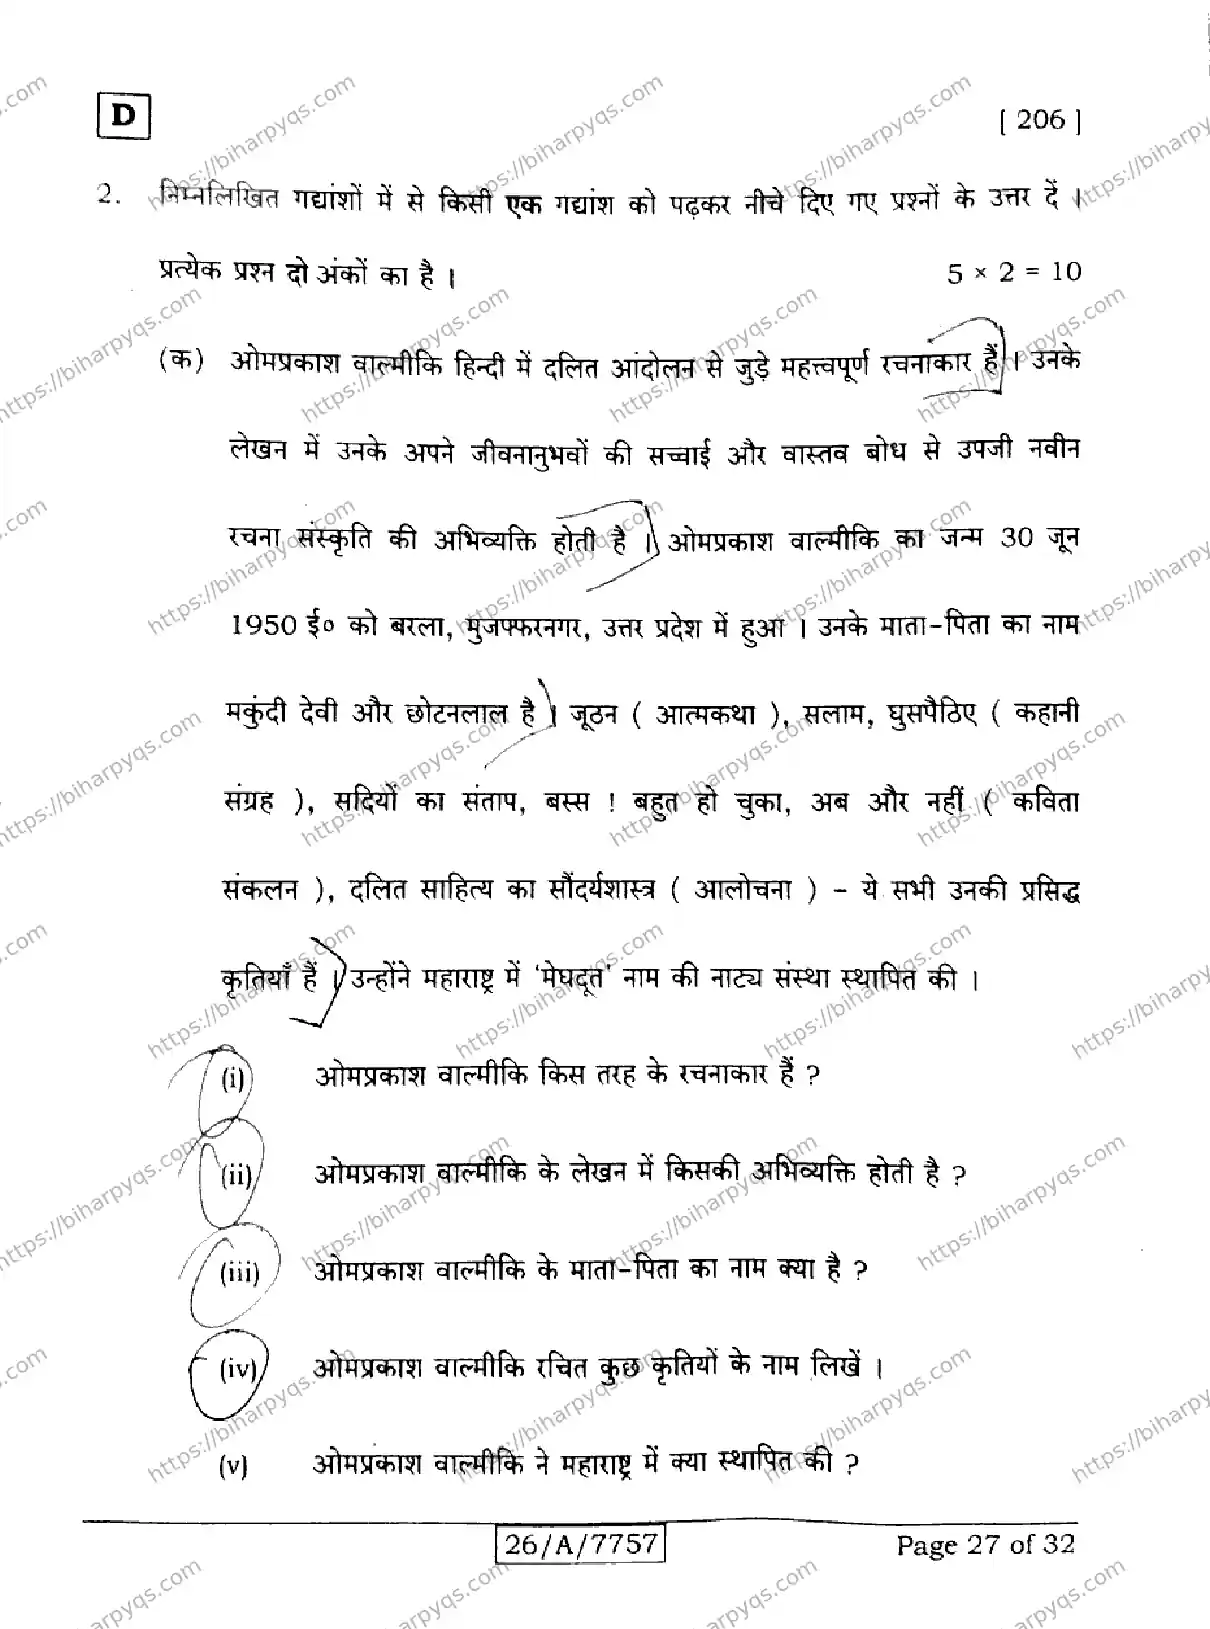 D
[ 206 ]
2. निम्नलिखित गद्यांशों में से किसी एक गद्यांश को पढ़कर नीचे दिए गए प्रश्नों के उत्तर दें ।
प्रत्येक प्रश्न दो अंकों का है ।
5 × 2 = 10
(क) ओमप्रकाश वाल्मीकि हिन्दी में दलित आंदोलन से जुड़े महत्त्वपूर्ण रचनाकार हैं । उनके
लेखन में उनके अपने जीवनानुभवों की सच्चाई और वास्तव बोध से उपजी नवीन
रचना संस्कृति की अभिव्यक्ति होती है । ओमप्रकाश वाल्मीकि का जन्म 30 जून
1950 ई० को बरला, मुजफ्फरनगर, उत्तर प्रदेश में हुआ । उनके माता-पिता का नाम
मकुंदी देवी और छोटनलाल है । जूठन ( आत्मकथा ), सलाम, घुसपैठिए ( कहानी
संग्रह ), सदियों का संताप, बस्स ! बहुत हो चुका, अब और नहीं ( कविता
संकलन ), दलित साहित्य का सौंदर्यशास्त्र ( आलोचना ) – ये सभी उनकी प्रसिद्ध
कृतियाँ हैं । उन्होंने महाराष्ट्र में 'मेघदूत' नाम की नाट्य संस्था स्थापित की ।
(i) ओमप्रकाश वाल्मीकि किस तरह के रचनाकार हैं ?
(ii) ओमप्रकाश वाल्मीकि के लेखन में किसकी अभिव्यक्ति होती है ?
(iii) ओमप्रकाश वाल्मीकि के माता-पिता का नाम क्या है ?
(iv) ओमप्रकाश वाल्मीकि रचित कुछ कृतियों के नाम लिखें ।
(v) ओमप्रकाश वाल्मीकि ने महाराष्ट्र में क्या स्थापित की ?
26/A/7757
Page 27 of 32
https://biharpyqs.com